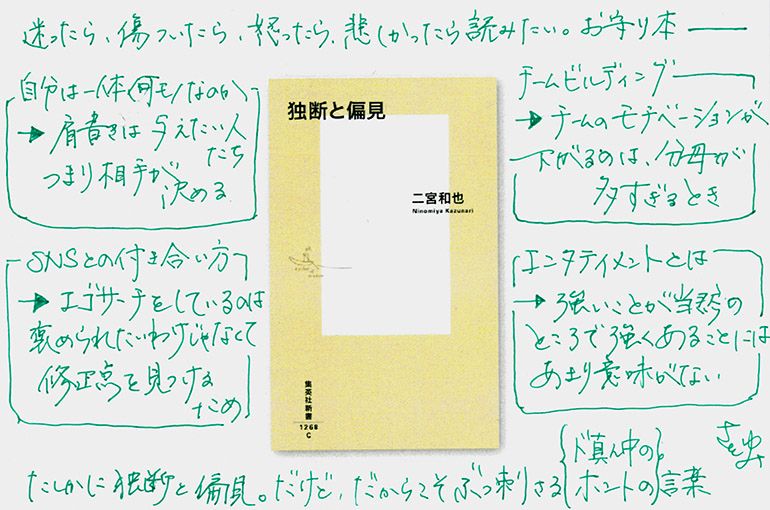 迷ったら、傷ついたら、怒ったら、悲しかったら読みたい。お守り本——
自分は一体何モノなのか
→ 肩書きは 与えたい人たち
つまり相手が
決める
SNSとの付き合い方
→ エゴサーチをしているのは
褒められたいわけじゃなくて
修正点を見つける
ため
独断と偏見
二宮和也
Ninomiya Kazunari
集英社新書
1268
C
チームビルディング
→ チームのモチベーションが
下がるのは、分母が
多すぎるとき
エンタテイメントとは
→ 強いことが当然の
ところで強くあることには
あまり意味がない
たしかに独断と偏見。だけど、だからこそぶっ刺さる{ド真ん中の
ホントの}言葉